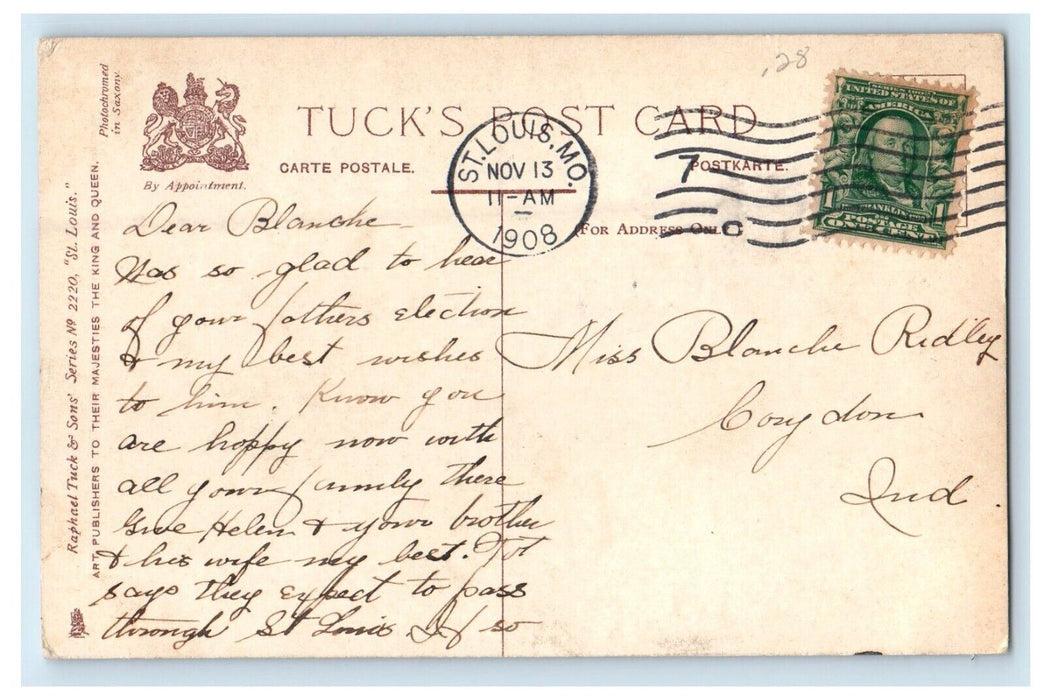 Photochromed
in Saxony.
By Appointment.
TUCK'S POST CARD
CARTE POSTALE.
POSTKARTE.
(FOR ADDRESS ONLY)
Raphael Tuck & Sons' Series Nº 2220, "St. Louis."
ART PUBLISHERS TO THEIR MAJESTIES THE KING AND QUEEN.
,28
ST. LOUIS, MO.
NOV 13
11-AM
1908
7
C
SERIES 1902
UNITED STATES OF
AMERICA
FRANKLIN
1 1
POSTAGE
ONE CENT
Dear Blanche
Was so glad to hear
of your fathers election
& my best wishes
to him. Know you
are happy now with
all your family there
Give Helen & your brother
& his wife my best. Tot
says they expect to pass
through St Louis If so
Miss Blanche Ridley
Corydon
Ind.